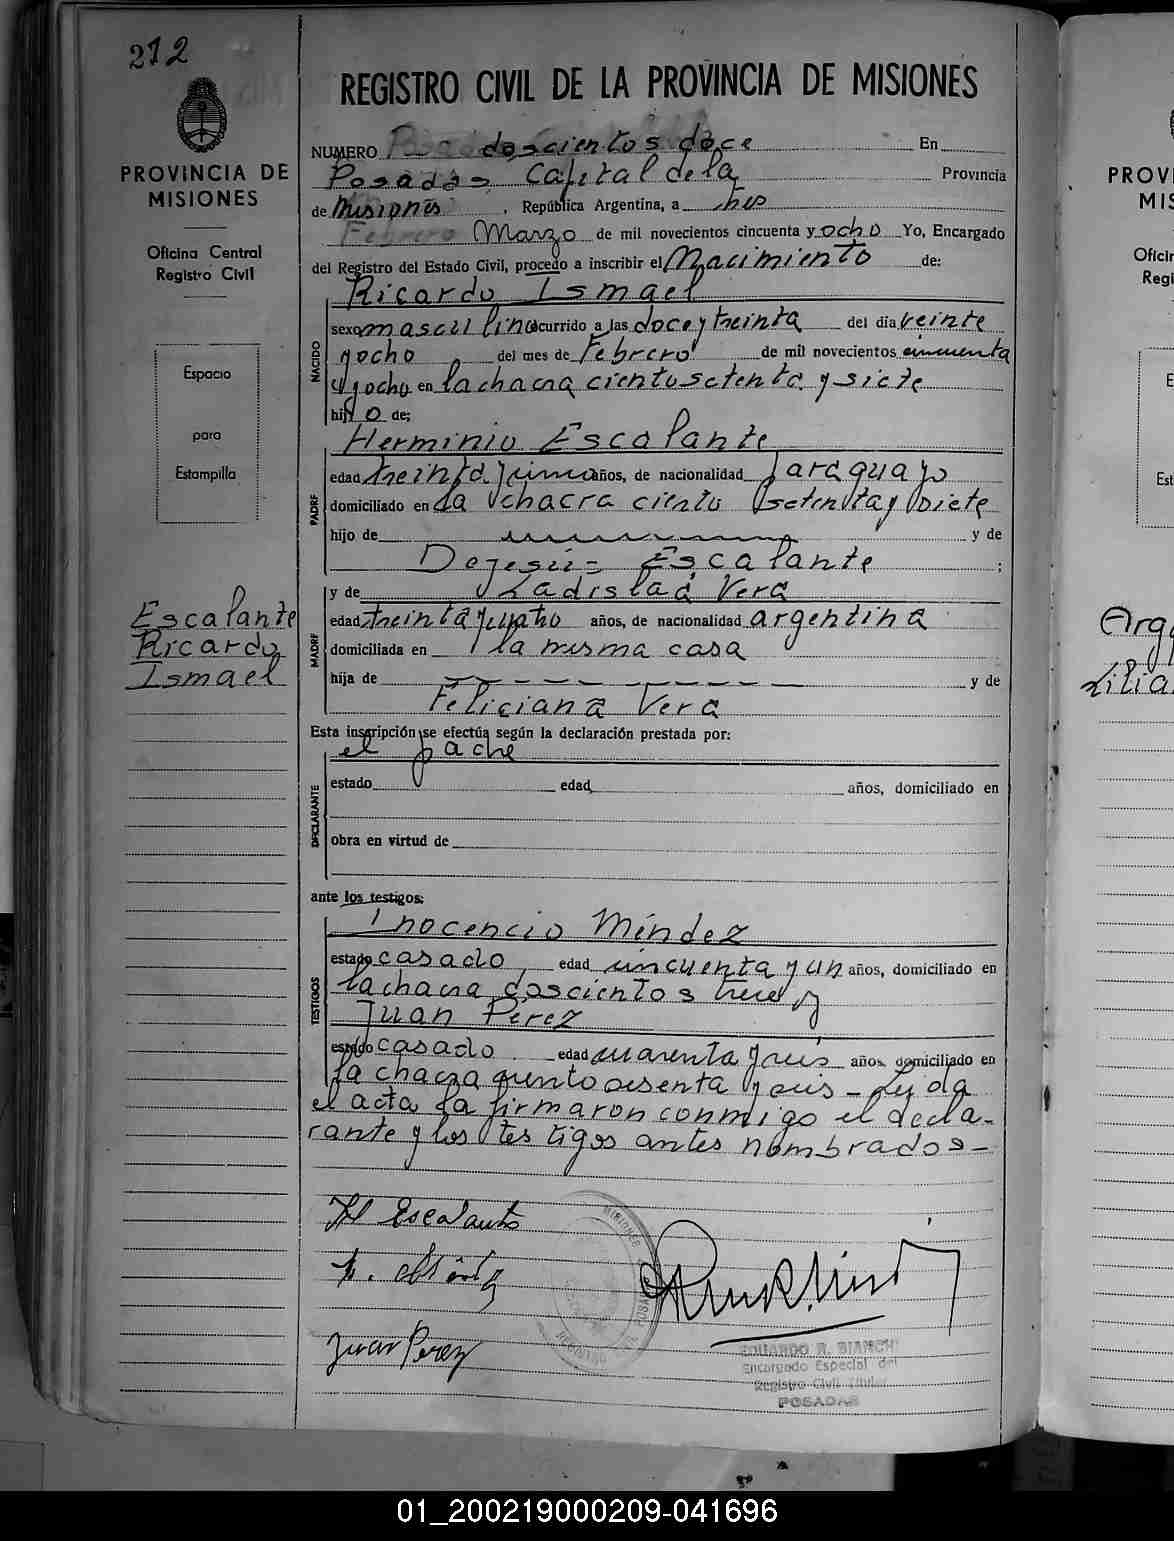 212
PROVINCIA DE
MISIONES
Oficina Central
Registro Civil
Espacio
para
Estampilla
Escalante
Ricardo
Ismael
REGISTRO CIVIL DE LA PROVINCIA DE MISIONES
NUMERO doscientos doce En
Posadas Capital de la Provincia
de Misiones, República Argentina, a tres
Febrero Marzo de mil novecientos cincuenta y ocho Yo, Encargado
del Registro del Estado Civil, procedo a inscribir el Nacimiento de:
NACIDO
Ricardo Ismael
sexo masculino ocurrido a las doce y treinta del día veinte
y ocho del mes de Febrero de mil novecientos cincuenta
y ocho en la chacra ciento setenta y siete
hijo de:
PADRE
Herminio Escalante
edad treinta y un años, de nacionalidad paraguayo
domiciliado en la chacra ciento setenta y siete
hijo de y de
Dejesús Escalante ;
MADRE
y de Ladislaa Vera
edad treinta y cuatro años, de nacionalidad argentina
domiciliada en la misma casa
hija de y de
Feliciana Vera
Esta inscripción se efectúa según la declaración prestada por:
DECLARANTE
el padre
estado edad años, domiciliado en
obra en virtud de
ante los testigos:
TESTIGOS
Inocencio Méndez
estado casado, edad cincuenta y un años, domiciliado en
la chacra doscientos trece y
Juan Perez
estado casado edad cuarenta y seis años, domiciliado en
la chacra ciento sesenta y seis - Leyda
el acta la firmaron conmigo el decla-
rante y los testigos antes nombrados -
H Escalante
Juan Perez
MISIONES
POSADAS
REGISTRO CIVIL
EDUARDO R. BIANCHI
Encargado Especial del
Registro Civil Titular
POSADAS
PROVI
MIS
Oficin
Regi
E
Est
Arg
Lilia
01_200219000209-041696